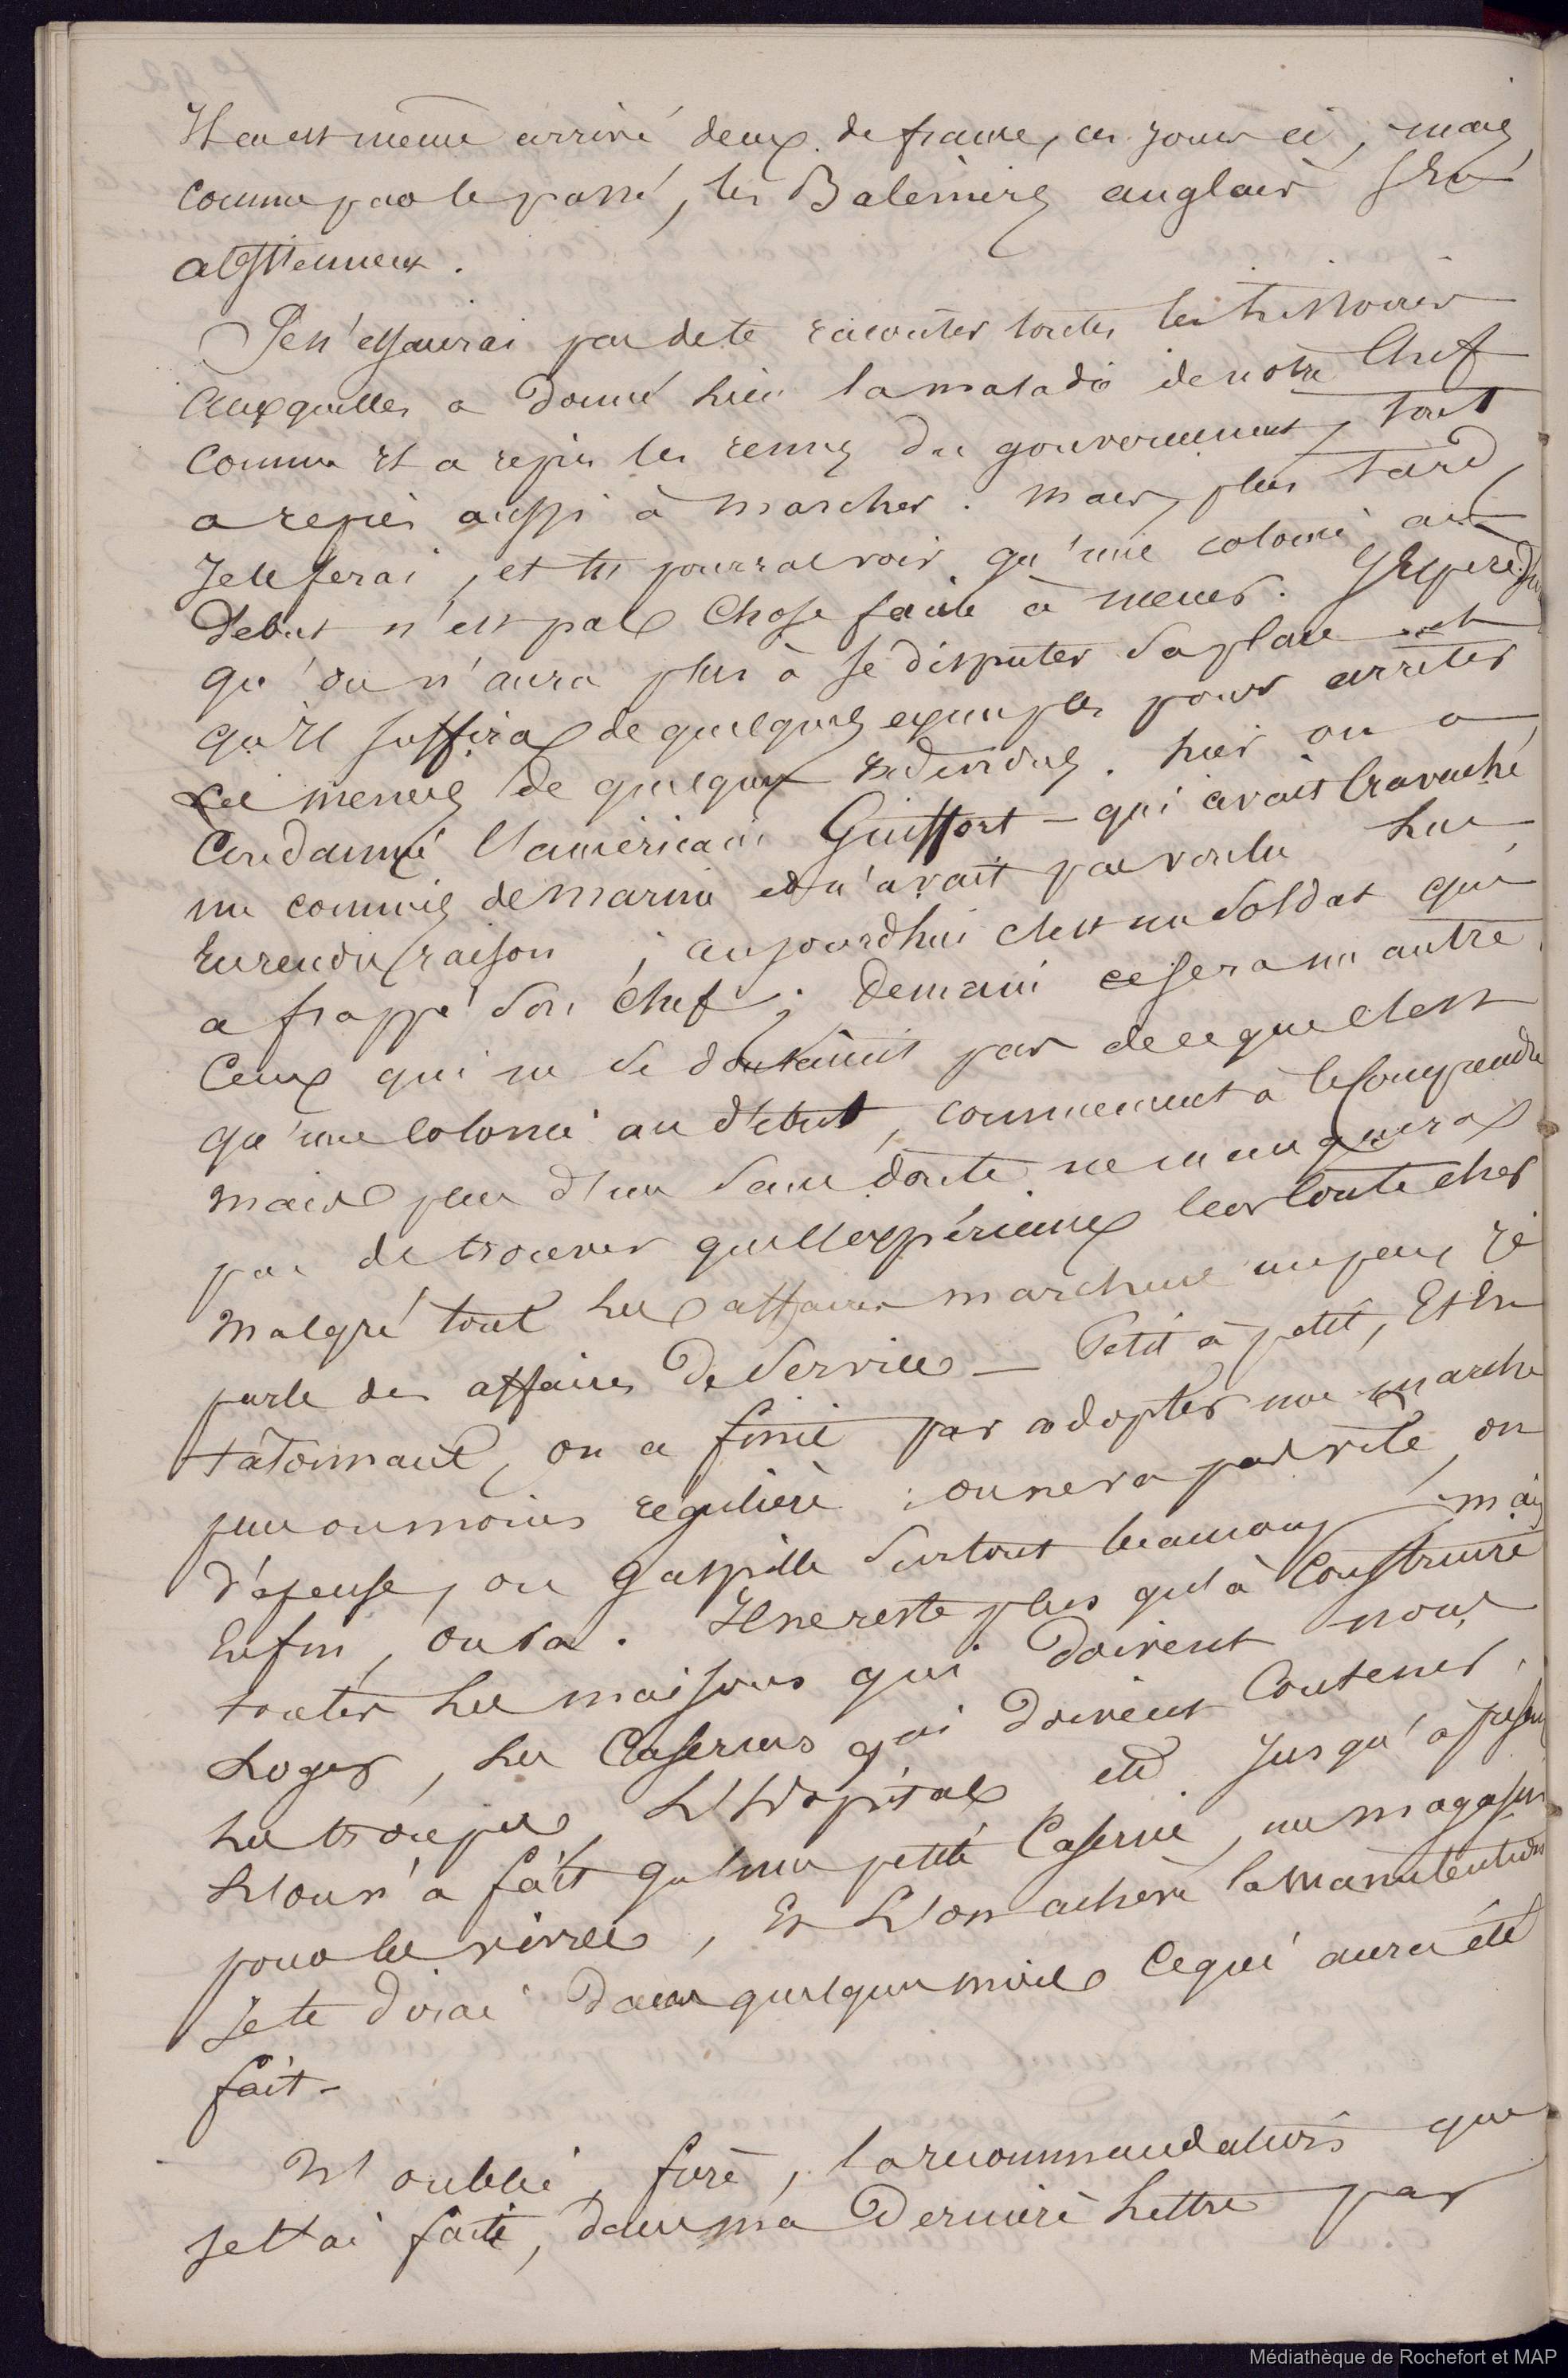 Il en est même arrivé deux de france, ces jours ci, mais
comme par le passé, les Baleiniers anglais s'en
abstiennent.
Je n'essaierai pas de te raconter toutes les histoires
auxquelles a donné lieu la maladie de notre Chef
comme il a repris les rennes du gouvernement, tout
a repris aussi à marcher. mais, plus tard,
je le ferai, et tu pourras voir qu'une colonie au
debut n'est pas chose facile à mener. J'espère
qu'on n'aura plus à se disputer sa place et
qu'il suffira de quelques exemples pour arrêter
les menées de quelques individus. hier on a
Condamné l'américain Guiffort - qui avait cravaché
un commis de marine et n'avait pas voulu lui
en rendre raison ; aujourd'hui c'est un soldat qui
a frappé son chef ; demain ce sera un autre
Ceux qui ne se doutaient pas de ce que c'est
qu'une colonie au début, commencent à le comprendre
mais plus d'un sans doute ne manquera
pas de trouver que l'expérience leur coute cher
Malgré tout les affaires marchent un peu, je
parle des affaires de service - Petit à petit, et en
tâtonnant, on a fini par adopter une marche
plus ou moins régulière ; on ne va pas vite, on
dépense, on gaspille surtout beaucoup, mais
Enfin, on va. Il ne reste plus qu'à construire
toutes les maisons qui doivent nous
Loger, les Casernes qui doivent Contenir
les troupes, L'hôpital, etc Jusqu'à présent
L'on n'a fait qu'une petite Caserne, un magasin
pour les vivres, Et L'on achève la manutention
Je te dirai dans quelques mois ce qui aura été
fait -
N'oublie, frère, la recommandation que
je t'ai faite, dans ma dernière Lettre par
Médiathèque de Rochefort et MAP